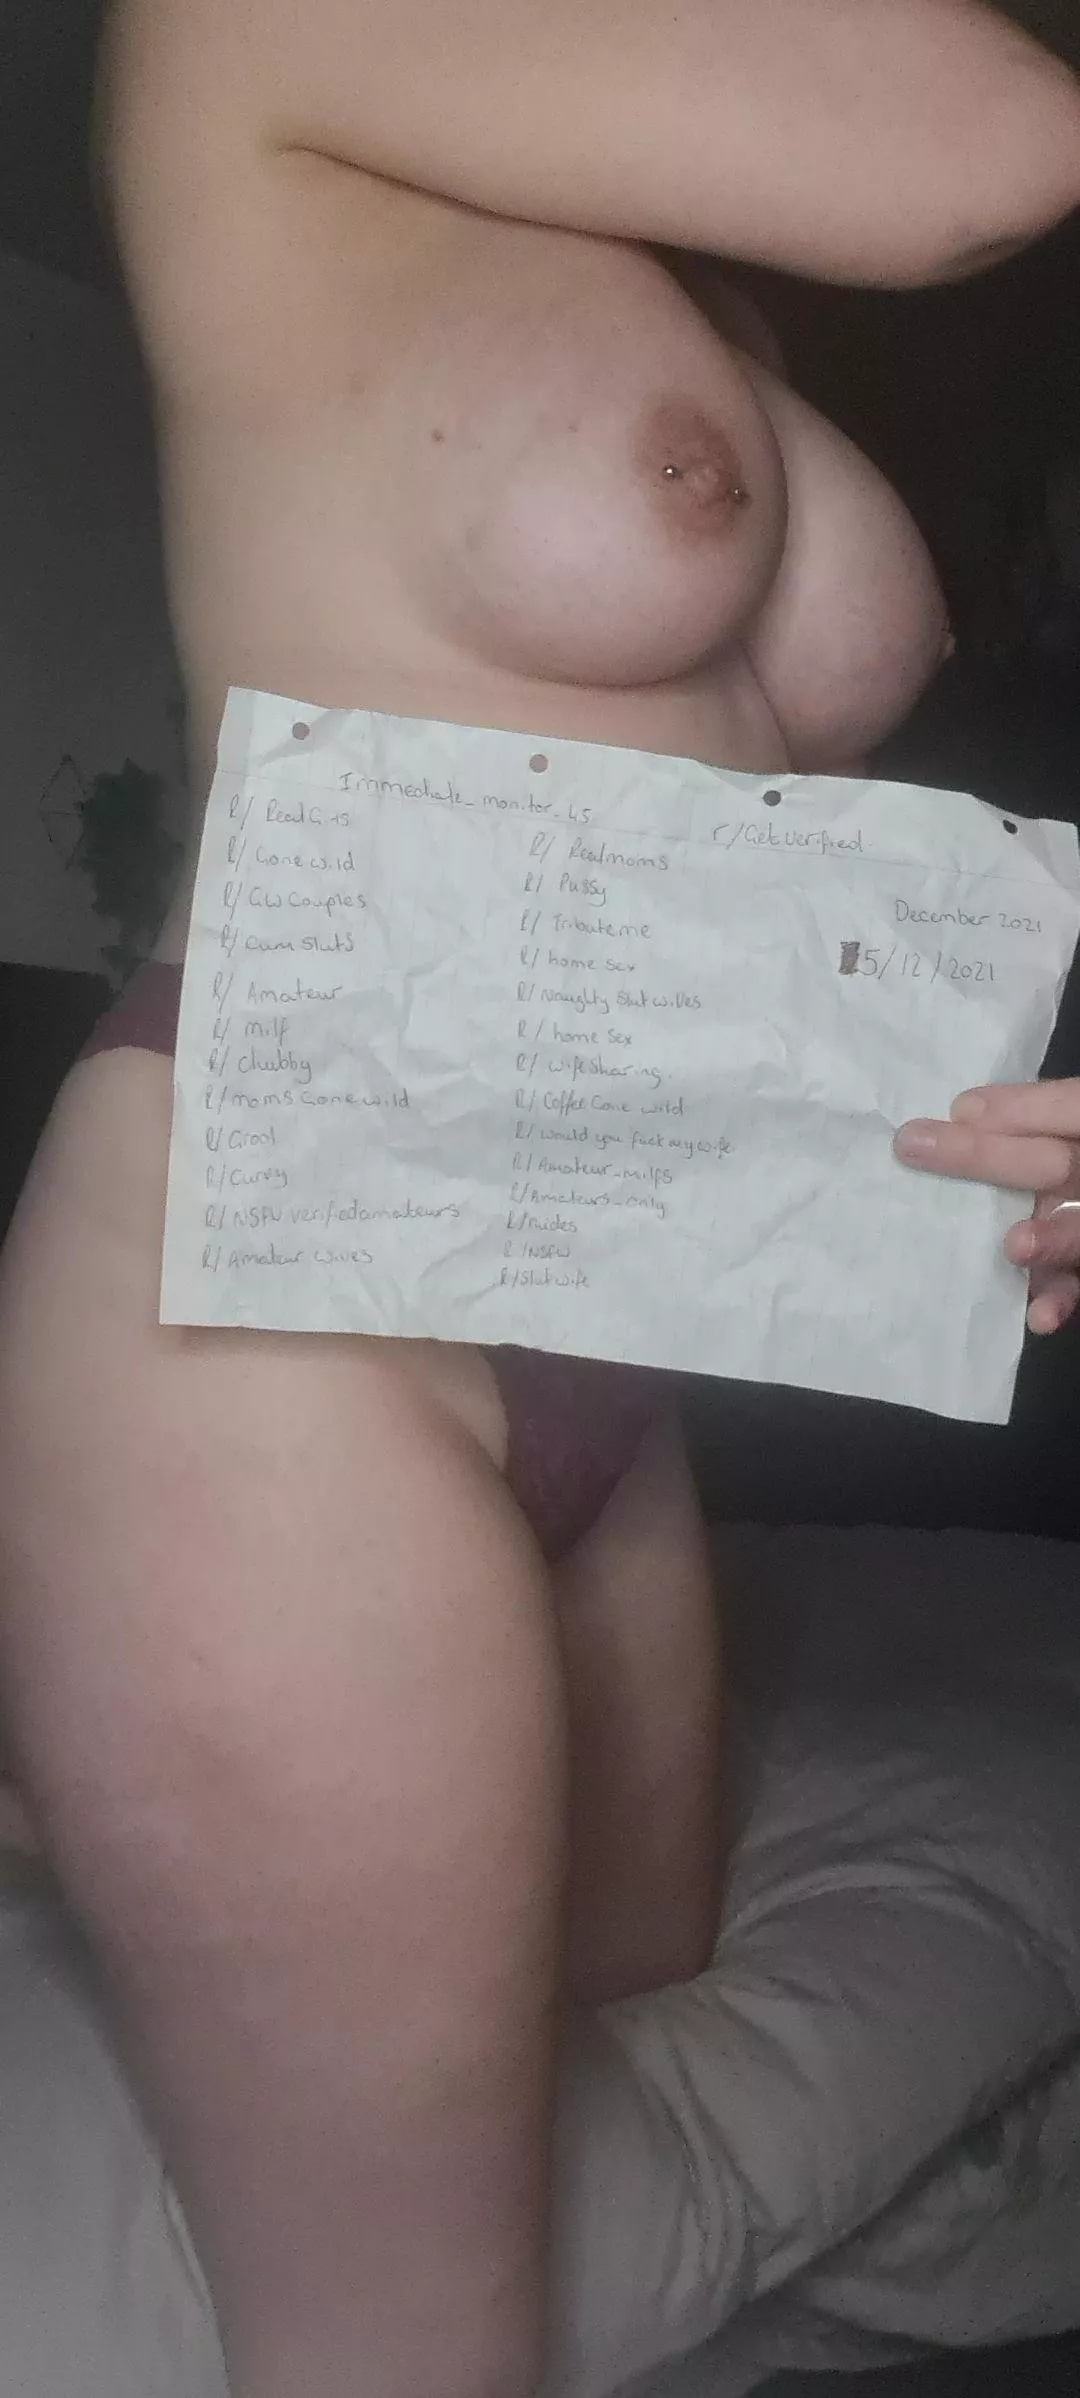 Immediate_monitor_45
r/Getverified
R/ RealGirls
R/ Gonewild
R/ GWCouples
R/ Cumsluts
R/ Amateur
R/ milf
R/ Chubby
R/momsGonewild
R/Grool
R/Curvy
R/NSFW verifiedamateurs
R/Amateur wives
R/ Realmoms
R/ Pussy
R/ Tributeme
R/ home sex
R/ Naughty Slutwives
R/ home Sex
R/ wifeSharing.
R/ CoffeeGone wild
R/ would you fuck my wife
R/Amateur_milfs
R/Amateurs_only
R/nudes
R/NSFW
R/Slutwife
December 2021
5/12/2021